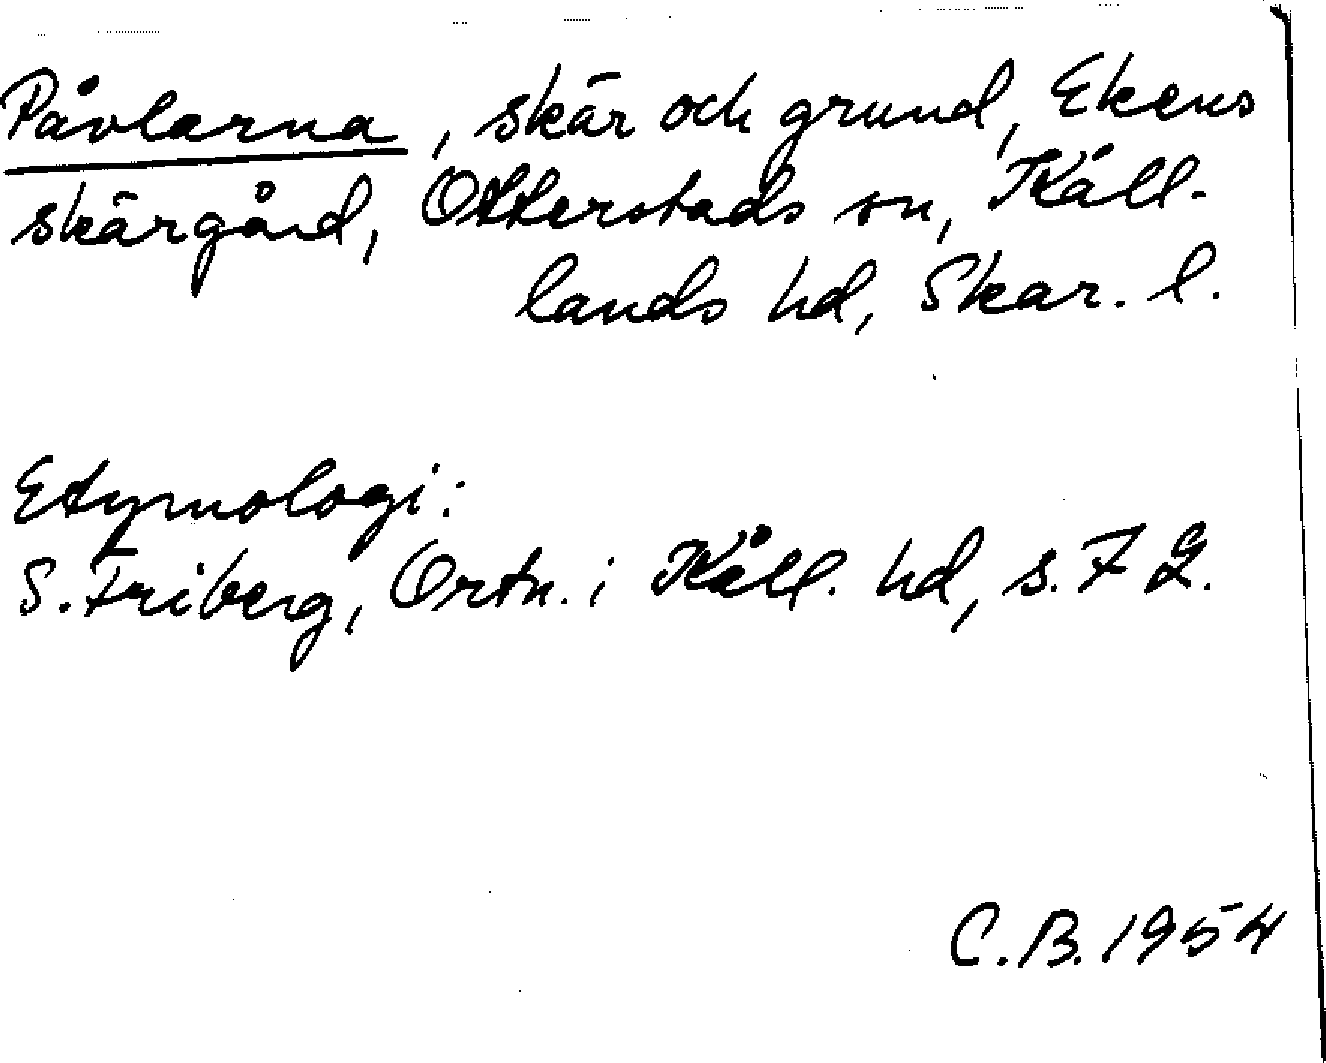 Påvlarna, skär och grund, Ekens
skärgård, Otterstads sn, Kåll-
lands hd, Skar. l.
Etymologi:
S. Friberg, Ortn. i Kåll. hd, s. 72.
C.B. 1954